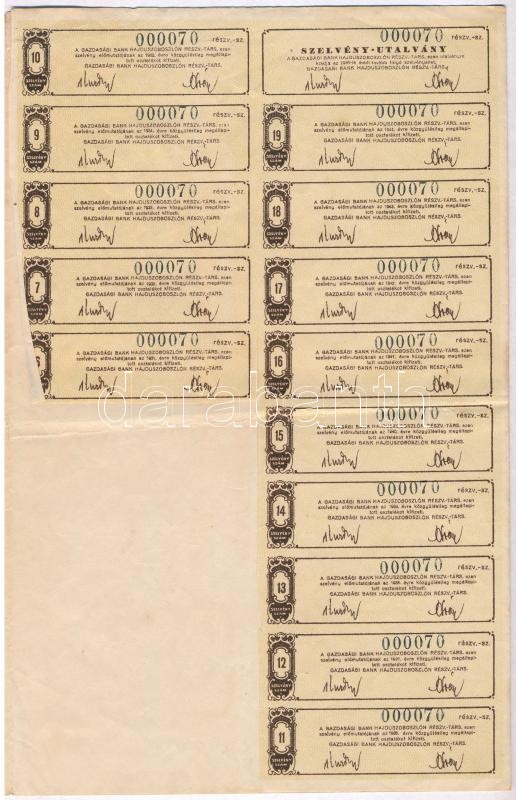 10
000070 RÉSZV.-SZ.
A GAZDASÁGI BANK HAJDUSZOBOSZLÓN RÉSZV.-TÁRS. ezen
szelvény előmutatójának az évre közgyülésileg megállapi-
tott osztalékot kifizeti.
GAZDASÁGI BANK HAJDUSZOBOSZLÓN RÉSZV.-TÁRS.
SZELVÉNY SZÁM
9
000070 RÉSZV.-SZ.
A GAZDASÁGI BANK HAJDUSZOBOSZLÓN RÉSZV.-TÁRS. ezen
szelvény előmutatójának az 1934. évre közgyülésileg megállapi-
tott osztalékot kifizeti.
GAZDASÁGI BANK HAJDUSZOBOSZLÓN RÉSZV.-TÁRS.
SZELVÉNY SZÁM
8
000070 RÉSZV.-SZ.
A GAZDASÁGI BANK HAJDUSZOBOSZLÓN RÉSZV.-TÁRS. ezen
szelvény előmutatójának az évre közgyülésileg megállapi-
tott osztalékot kifizeti.
GAZDASÁGI BANK HAJDUSZOBOSZLÓN RÉSZV.-TÁRS.
SZELVÉNY SZÁM
7
000070 RÉSZV.-SZ.
A GAZDASÁGI BANK HAJDUSZOBOSZLÓN RÉSZV.-TÁRS. ezen
szelvény előmutatójának az évre közgyülésileg megállapi-
tott osztalékot kifizeti.
GAZDASÁGI BANK HAJDUSZOBOSZLÓN RÉSZV.-TÁRS.
000070 RÉSZV.-SZ.
A GAZDASÁGI BANK HAJDUSZOBOSZLÓN RÉSZV.-TÁRS. ezen
szelvény előmutatójának az 1931. évre közgyülésileg megállapi-
tott osztalékot kifizeti.
GAZDASÁGI BANK HAJDUSZOBOSZLÓN RÉSZV.-TÁRS.
000070 RÉSZV.-SZ.
SZELVÉNY-UTALVÁNY
A GAZDASÁGI BANK HAJDUSZOBOSZLÓN RÉSZV.-TÁRS. ezen
GAZDASÁGI BANK HAJDUSZOBOSZLÓN RÉSZV.-TÁRS.
19
000070 RÉSZV.-SZ.
A GAZDASÁGI BANK HAJDUSZOBOSZLÓN RÉSZV.-TÁRS. ezen
szelvény előmutatójának az 1944. évre közgyülésileg megállapi-
tott osztalékot kifizeti.
GAZDASÁGI BANK HAJDUSZOBOSZLÓN RÉSZV.-TÁRS.
SZELVÉNY SZÁM
18
000070 RÉSZV.-SZ.
A GAZDASÁGI BANK HAJDUSZOBOSZLÓN RÉSZV.-TÁRS. ezen
szelvény előmutatójának az 1943. évre közgyülésileg megállapi-
tott osztalékot kifizeti.
GAZDASÁGI BANK HAJDUSZOBOSZLÓN RÉSZV.-TÁRS.
SZELVÉNY SZÁM
17
000070 RÉSZV.-SZ.
A GAZDASÁGI BANK HAJDUSZOBOSZLÓN RÉSZV.-TÁRS. ezen
szelvény előmutatójának az 1942. évre közgyülésileg megállapi-
tott osztalékot kifizeti.
GAZDASÁGI BANK HAJDUSZOBOSZLÓN RÉSZV.-TÁRS.
SZELVÉNY SZÁM
16
000070 RÉSZV.-SZ.
A GAZDASÁGI BANK HAJDUSZOBOSZLÓN RÉSZV.-TÁRS. ezen
szelvény előmutatójának az 1941. évre közgyülésileg megállapi-
tott osztalékot kifizeti.
GAZDASÁGI BANK HAJDUSZOBOSZLÓN RÉSZV.-TÁRS.
SZELVÉNY SZÁM
15
000070 RÉSZV.-SZ.
A GAZDASÁGI BANK HAJDUSZOBOSZLÓN RÉSZV.-TÁRS. ezen
szelvény előmutatójának az 1940. évre közgyülésileg megállapi-
tott osztalékot kifizeti.
GAZDASÁGI BANK HAJDUSZOBOSZLÓN RÉSZV.-TÁRS.
SZELVÉNY SZÁM
14
000070 RÉSZV.-SZ.
A GAZDASÁGI BANK HAJDUSZOBOSZLÓN RÉSZV.-TÁRS. ezen
szelvény előmutatójának az 1939. évre közgyülésileg megállapi-
tott osztalékot kifizeti.
GAZDASÁGI BANK HAJDUSZOBOSZLÓN RÉSZV.-TÁRS.
SZELVÉNY SZÁM
13
000070 RÉSZV.-SZ.
A GAZDASÁGI BANK HAJDUSZOBOSZLÓN RÉSZV.-TÁRS. ezen
szelvény előmutatójának az 1938. évre közgyülésileg megállapi-
tott osztalékot kifizeti.
GAZDASÁGI BANK HAJDUSZOBOSZLÓN RÉSZV.-TÁRS.
SZELVÉNY SZÁM
12
000070 RÉSZV.-SZ.
A GAZDASÁGI BANK HAJDUSZOBOSZLÓN RÉSZV.-TÁRS. ezen
szelvény előmutatójának az 1937. évre közgyülésileg megállapi-
tott osztalékot kifizeti.
GAZDASÁGI BANK HAJDUSZOBOSZLÓN RÉSZV.-TÁRS.
SZELVÉNY SZÁM
11
000070 RÉSZV.-SZ.
A GAZDASÁGI BANK HAJDUSZOBOSZLÓN RÉSZV.-TÁRS. ezen
szelvény előmutatójának az 1936. évre közgyülésileg megállapi-
tott osztalékot kifizeti.
GAZDASÁGI BANK HAJDUSZOBOSZLÓN RÉSZV.-TÁRS.
SZELVÉNY SZÁM
darabanth.com